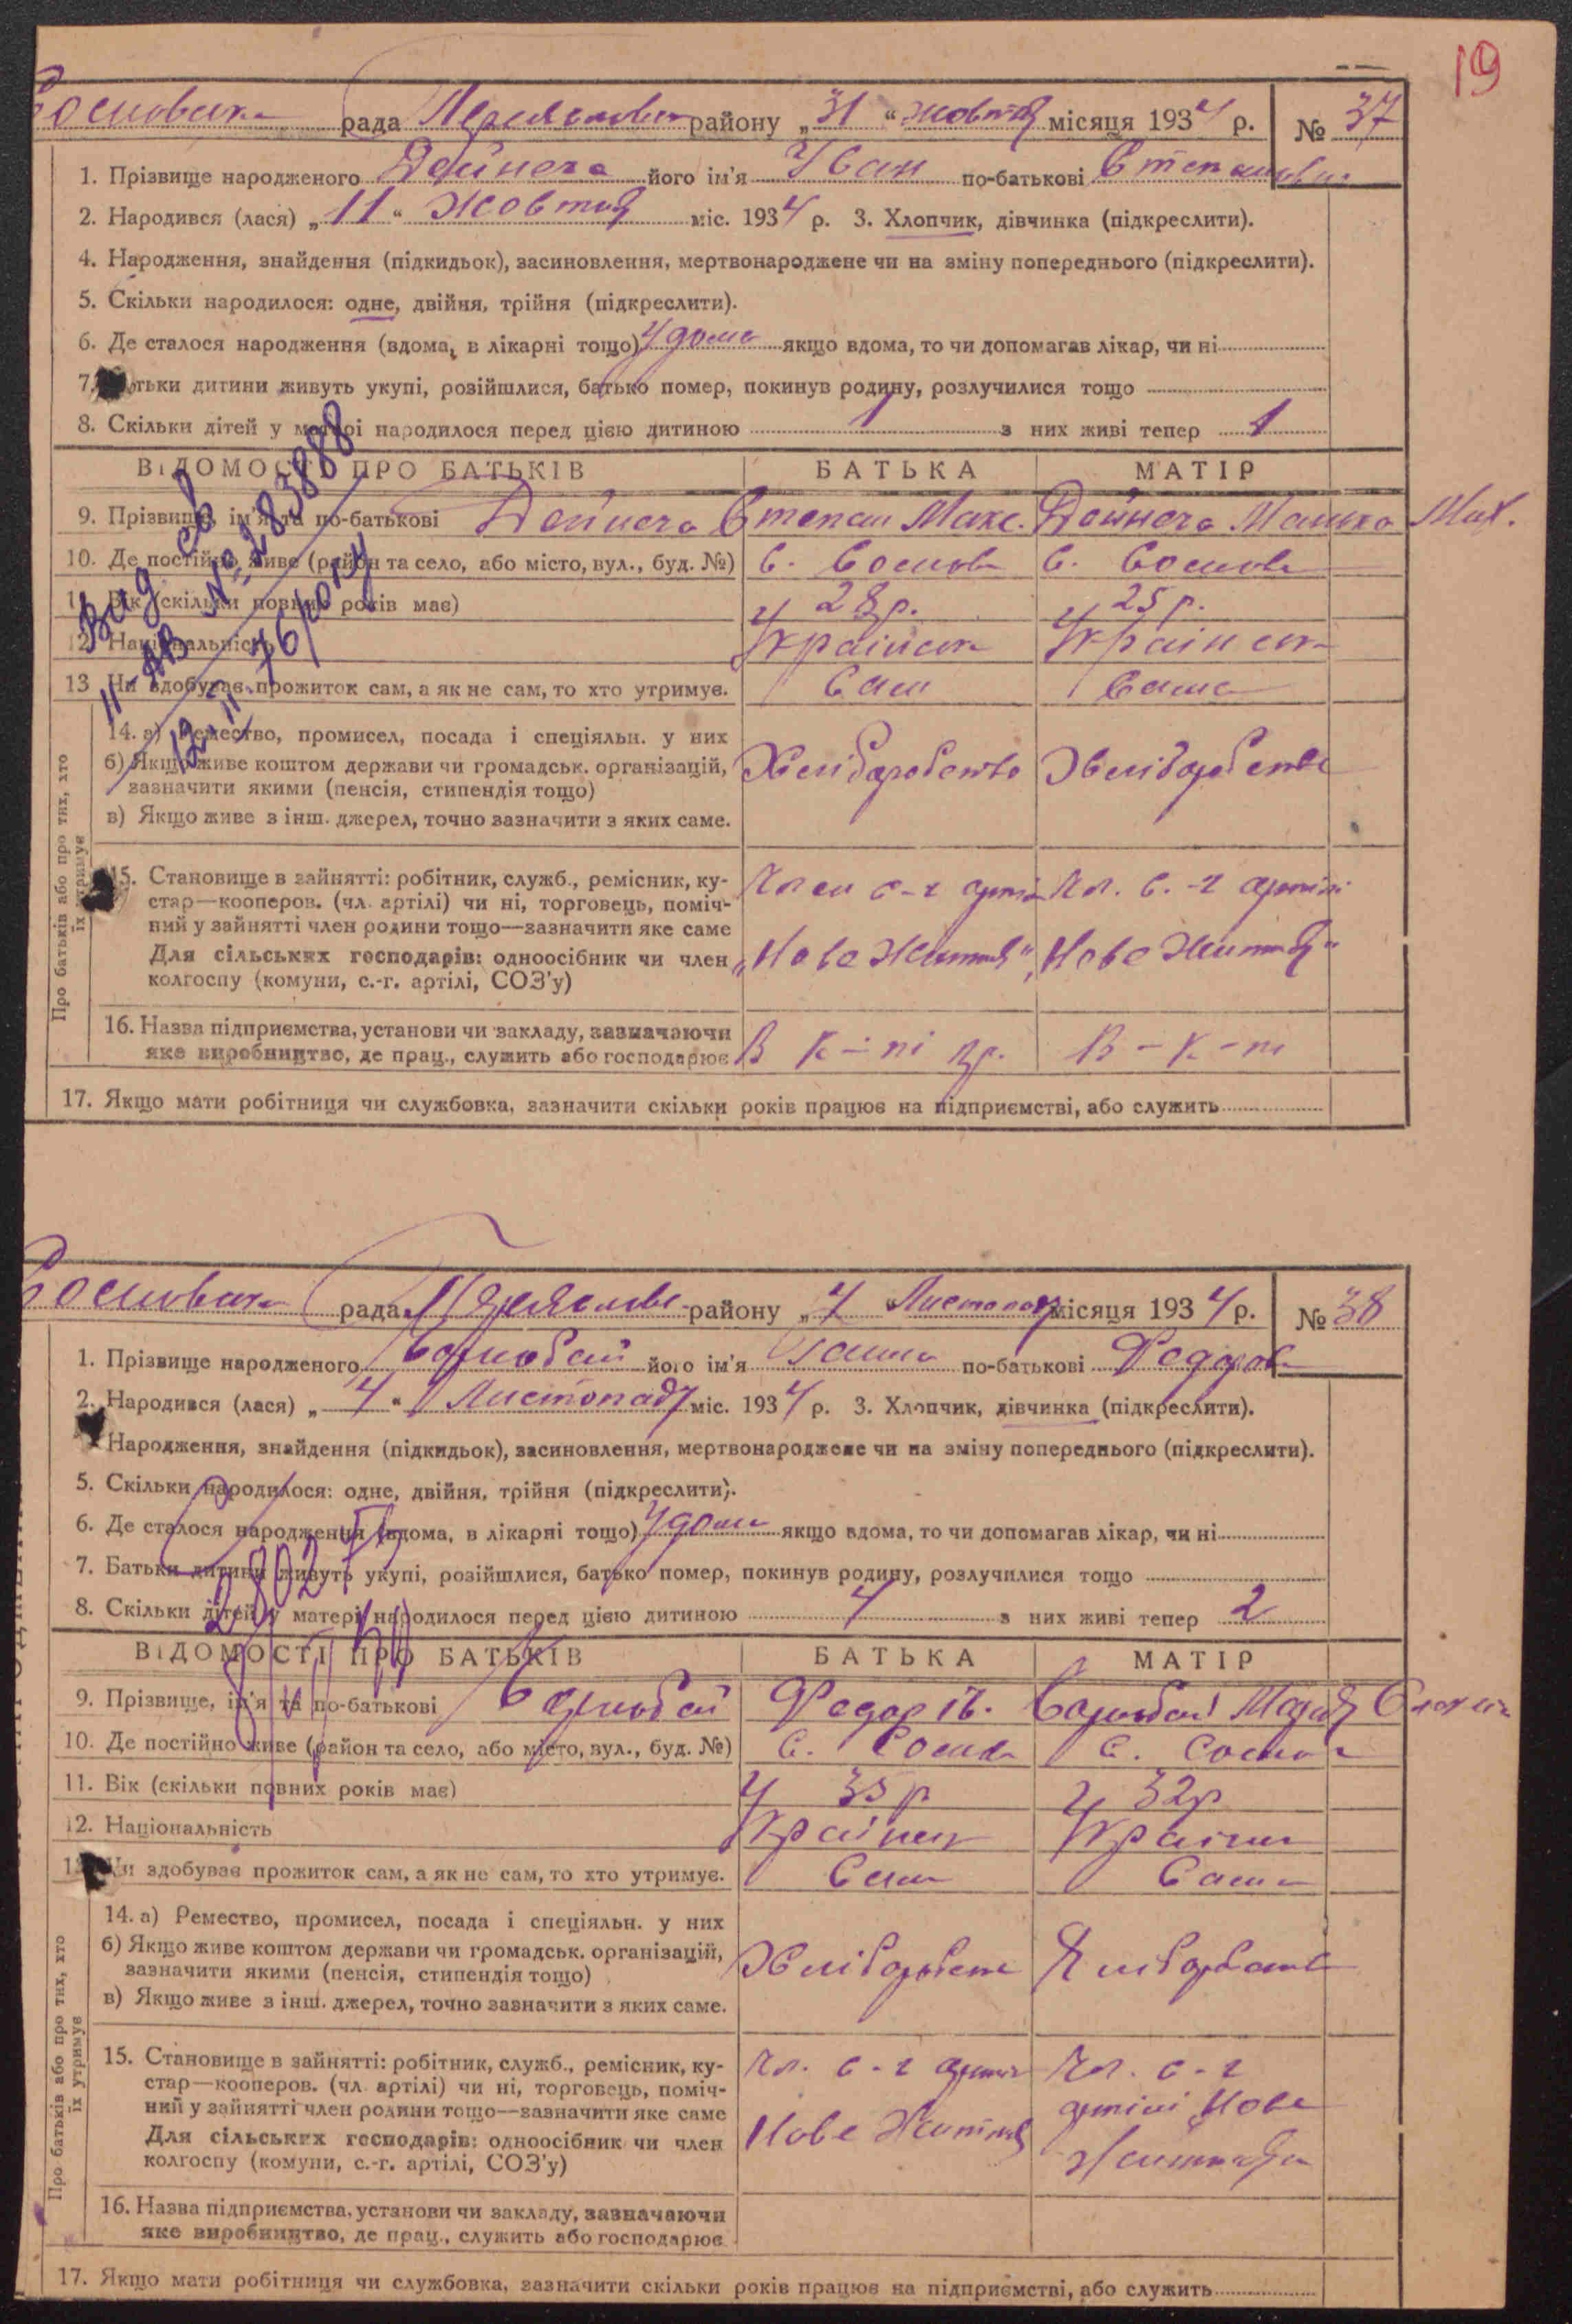 19
Соснівська рада Переяславськ району „31“ жовтня місяця 1934 р. № 37
1. Прізвище народженого Дейнега його ім'я Іван по-батькові Степанович
2. Народився (лася) „11“ Жовтня міс. 1934 р. 3. Хлопчик, дівчинка (підкреслити).
4. Народження, знайдення (підкидьок), засиновлення, мертвонароджене чи на зміну попереднього (підкреслити).
5. Скільки народилося: одне, двійня, трійня (підкреслити).
6. Де сталося народження (вдома, в лікарні тощо) Удома якщо вдома, то чи допомагав лікар, чи ні
7. Батьки дитини живуть укупі, розійшлися, батько помер, покинув родину, розлучилися тощо
8. Скільки дітей у матері народилося перед цією дитиною 1 з них живі тепер 1
ВІДОМОСТІ ПРО БАТЬКІВ БАТЬКА МАТІР
9. Прізвище, ім'я та по-батькові Дейнега Степан Макс. Дейнега Мотя Мих.
10. Де постійно живе (район та село, або місто, вул., буд. №) С. Соснова С. Соснова
11. Вік (скільки повних років має) 28 р. 25 р.
12. Національність Українська Українська
13 Чи здобуває прожиток сам, а як не сам, то хто утримує. Сам Сама
Вид св
II-АВ № 283888
12-II-76 року
Про батьків або про тих, хто їх утримує
14. а) Ремество, промисел, посада і спеціяльн. у них
б) Якщо живе коштом держави чи громадськ. організацій, Хліборобство Хліборобство
зазначити якими (пенсія, стипендія тощо)
в) Якщо живе з інш. джерел, точно зазначити з яких саме.
15. Становище в зайнятті: робітник, служб., ремісник, ку- Член с-г артілі Чл. с.-г артілі
стар—кооперов. (чл. артілі) чи ні, торговець, поміч-
ний у зайнятті член родини тощо—зазначити яке саме
Для сільських господарів: одноосібник чи член „Нове Життя“ „Нове Життя“
колгоспу (комуни, с.-г. артілі, СОЗ'у)
16. Назва підприємства, установи чи закладу, зазначаючи
яке виробництво, де прац., служить або господарює В к-пі В-к-пі
17. Якщо мати робітниця чи службовка, зазначити скільки років працює на підприємстві, або служить
Соснівська рада Переяславс району „7 Листопаду місяця 1934 р. № 38
1. Прізвище народженого його ім'я Ганна по-батькові Федоров
2. Народився (лася) „4“ Листопаду міс. 1934 р. 3. Хлопчик, дівчинка (підкреслити).
Народження, знайдення (підкидьок), засиновлення, мертвонароджене чи на зміну попереднього (підкреслити).
5. Скільки народилося: одне, двійня, трійня (підкреслити).
6. Де сталося народження (вдома, в лікарні тощо) Удома якщо вдома, то чи допомагав лікар, чи ні
7. Батьки дитини живуть укупі, розійшлися, батько помер, покинув родину, розлучилися тощо
8. Скільки дітей у матері народилося перед цією дитиною 4 з них живі тепер 2
ВІДОМОСТІ ПРО БАТЬКІВ БАТЬКА МАТІР
9. Прізвище, ім'я та по-батькові Федор Ів.
10. Де постійно живе (район та село, або місто, вул., буд. №) С. Соснова С. Соснова
11. Вік (скільки повних років має) 35 р 32 р
12. Національність Українець Українка
13. Чи здобуває прожиток сам, а як не сам, то хто утримує. Сам Сама
Про батьків або про тих, хто їх утримує
14. а) Ремество, промисел, посада і спеціяльн. у них
б) Якщо живе коштом держави чи громадськ. організацій, Хліборобств Хліборобств
зазначити якими (пенсія, стипендія тощо)
в) Якщо живе з інш. джерел, точно зазначити з яких саме.
15. Становище в зайнятті: робітник, служб., ремісник, ку- Чл. с-г артілі Чл. с-г
стар—кооперов. (чл. артілі) чи ні, торговець, поміч-
ний у зайнятті член родини тощо—зазначити яке саме артілі Нове
Для сільських господарів: одноосібник чи член Нове Життя Життя
колгоспу (комуни, с.-г. артілі, СОЗ'у)
16. Назва підприємства, установи чи закладу, зазначаючи
яке виробництво, де прац., служить або господарює
17. Якщо мати робітниця чи службовка, зазначити скільки років працює на підприємстві, або служить